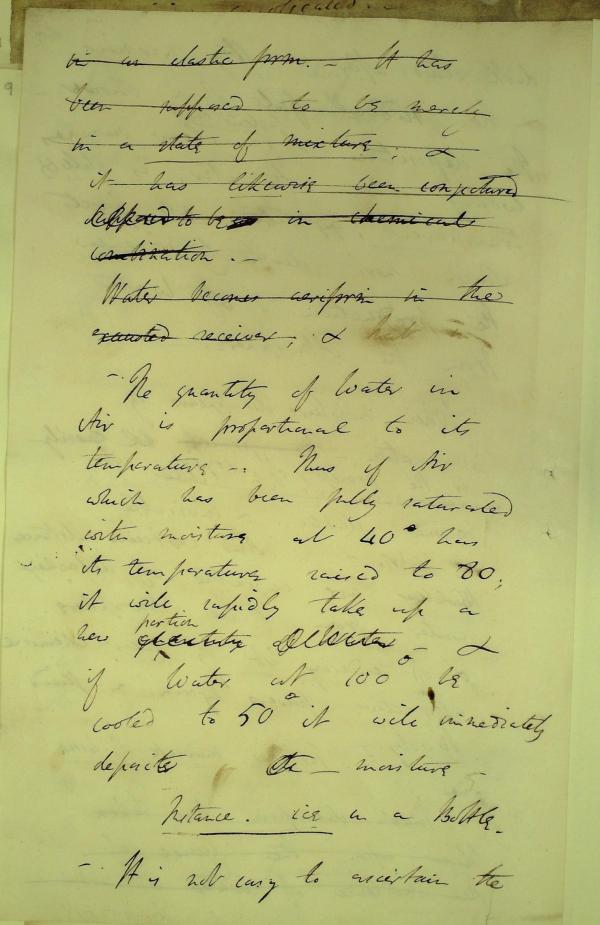 in an elastic form. – It has
been supposed to be merely
in a state of mixture; &
it has likewise been conjectured
supposed to be in chemical
combination. –
Water becomes aeriform in the
exausted receiver; &
– The quantity of Water in
Air is proportional to its
temperature –. Thus if Air
which has been fully saturated
with moisture at 40° has
its temperature raised to 80;
it will rapidly take up a
portion
new quantity of Water – &
if Water at 100° be
cooled to 50° it will immediately
deposit – moisture –
Instance. ice in a Bottle.
–. It is not easy to ascertain the